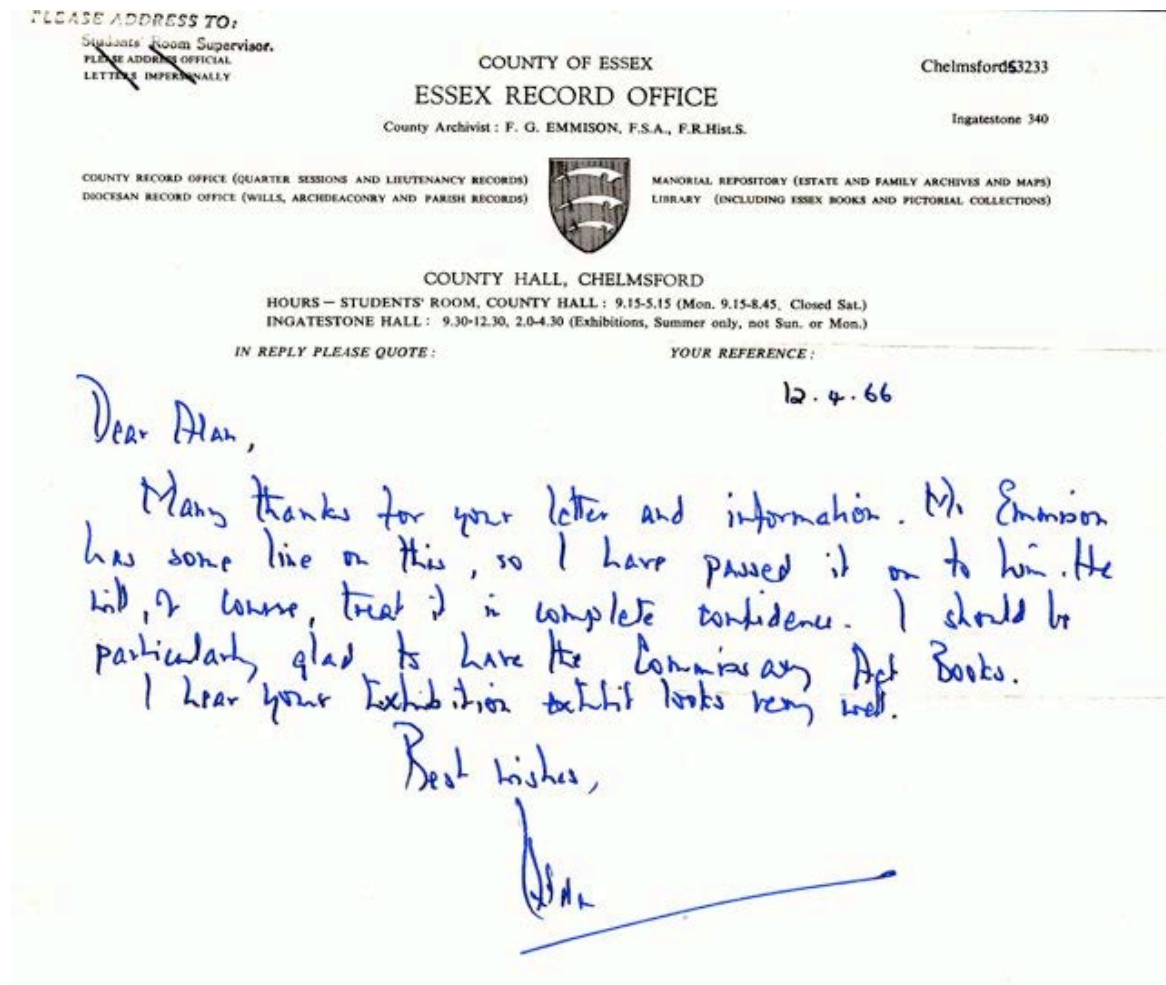 PLEASE ADDRESS TO:
Students' Room Supervisor.
PLEASE ADDRESS OFFICIAL
LETTERS IMPERSONALLY
COUNTY OF ESSEX
ESSEX RECORD OFFICE
County Archivist : F. G. EMMISON, F.S.A., F.R.Hist.S.
Chelmsford 53233
Ingatestone 340
COUNTY RECORD OFFICE (QUARTER SESSIONS AND LIEUTENANCY RECORDS)
DIOCESAN RECORD OFFICE (WILLS, ARCHDEACONRY AND PARISH RECORDS)
MANORIAL REPOSITORY (ESTATE AND FAMILY ARCHIVES AND MAPS)
LIBRARY (INCLUDING ESSEX BOOKS AND PICTORIAL COLLECTIONS)
COUNTY HALL, CHELMSFORD
HOURS — STUDENTS' ROOM, COUNTY HALL : 9.15-5.15 (Mon. 9.15-8.45, Closed Sat.)
INGATESTONE HALL : 9.30-12.30, 2.0-4.30 (Exhibitions, Summer only, not Sun. or Mon.)
IN REPLY PLEASE QUOTE :
YOUR REFERENCE :
12.4.66
Dear Alan,
Many thanks for your letter and information. Mr Emmison
has some line on this, so I have passed it on to him. He
will, of course, treat it in complete confidence. I should be
particularly glad to have the Commissary Act Books.
I hear your Exhibition exhibit looks very well.
Best wishes,